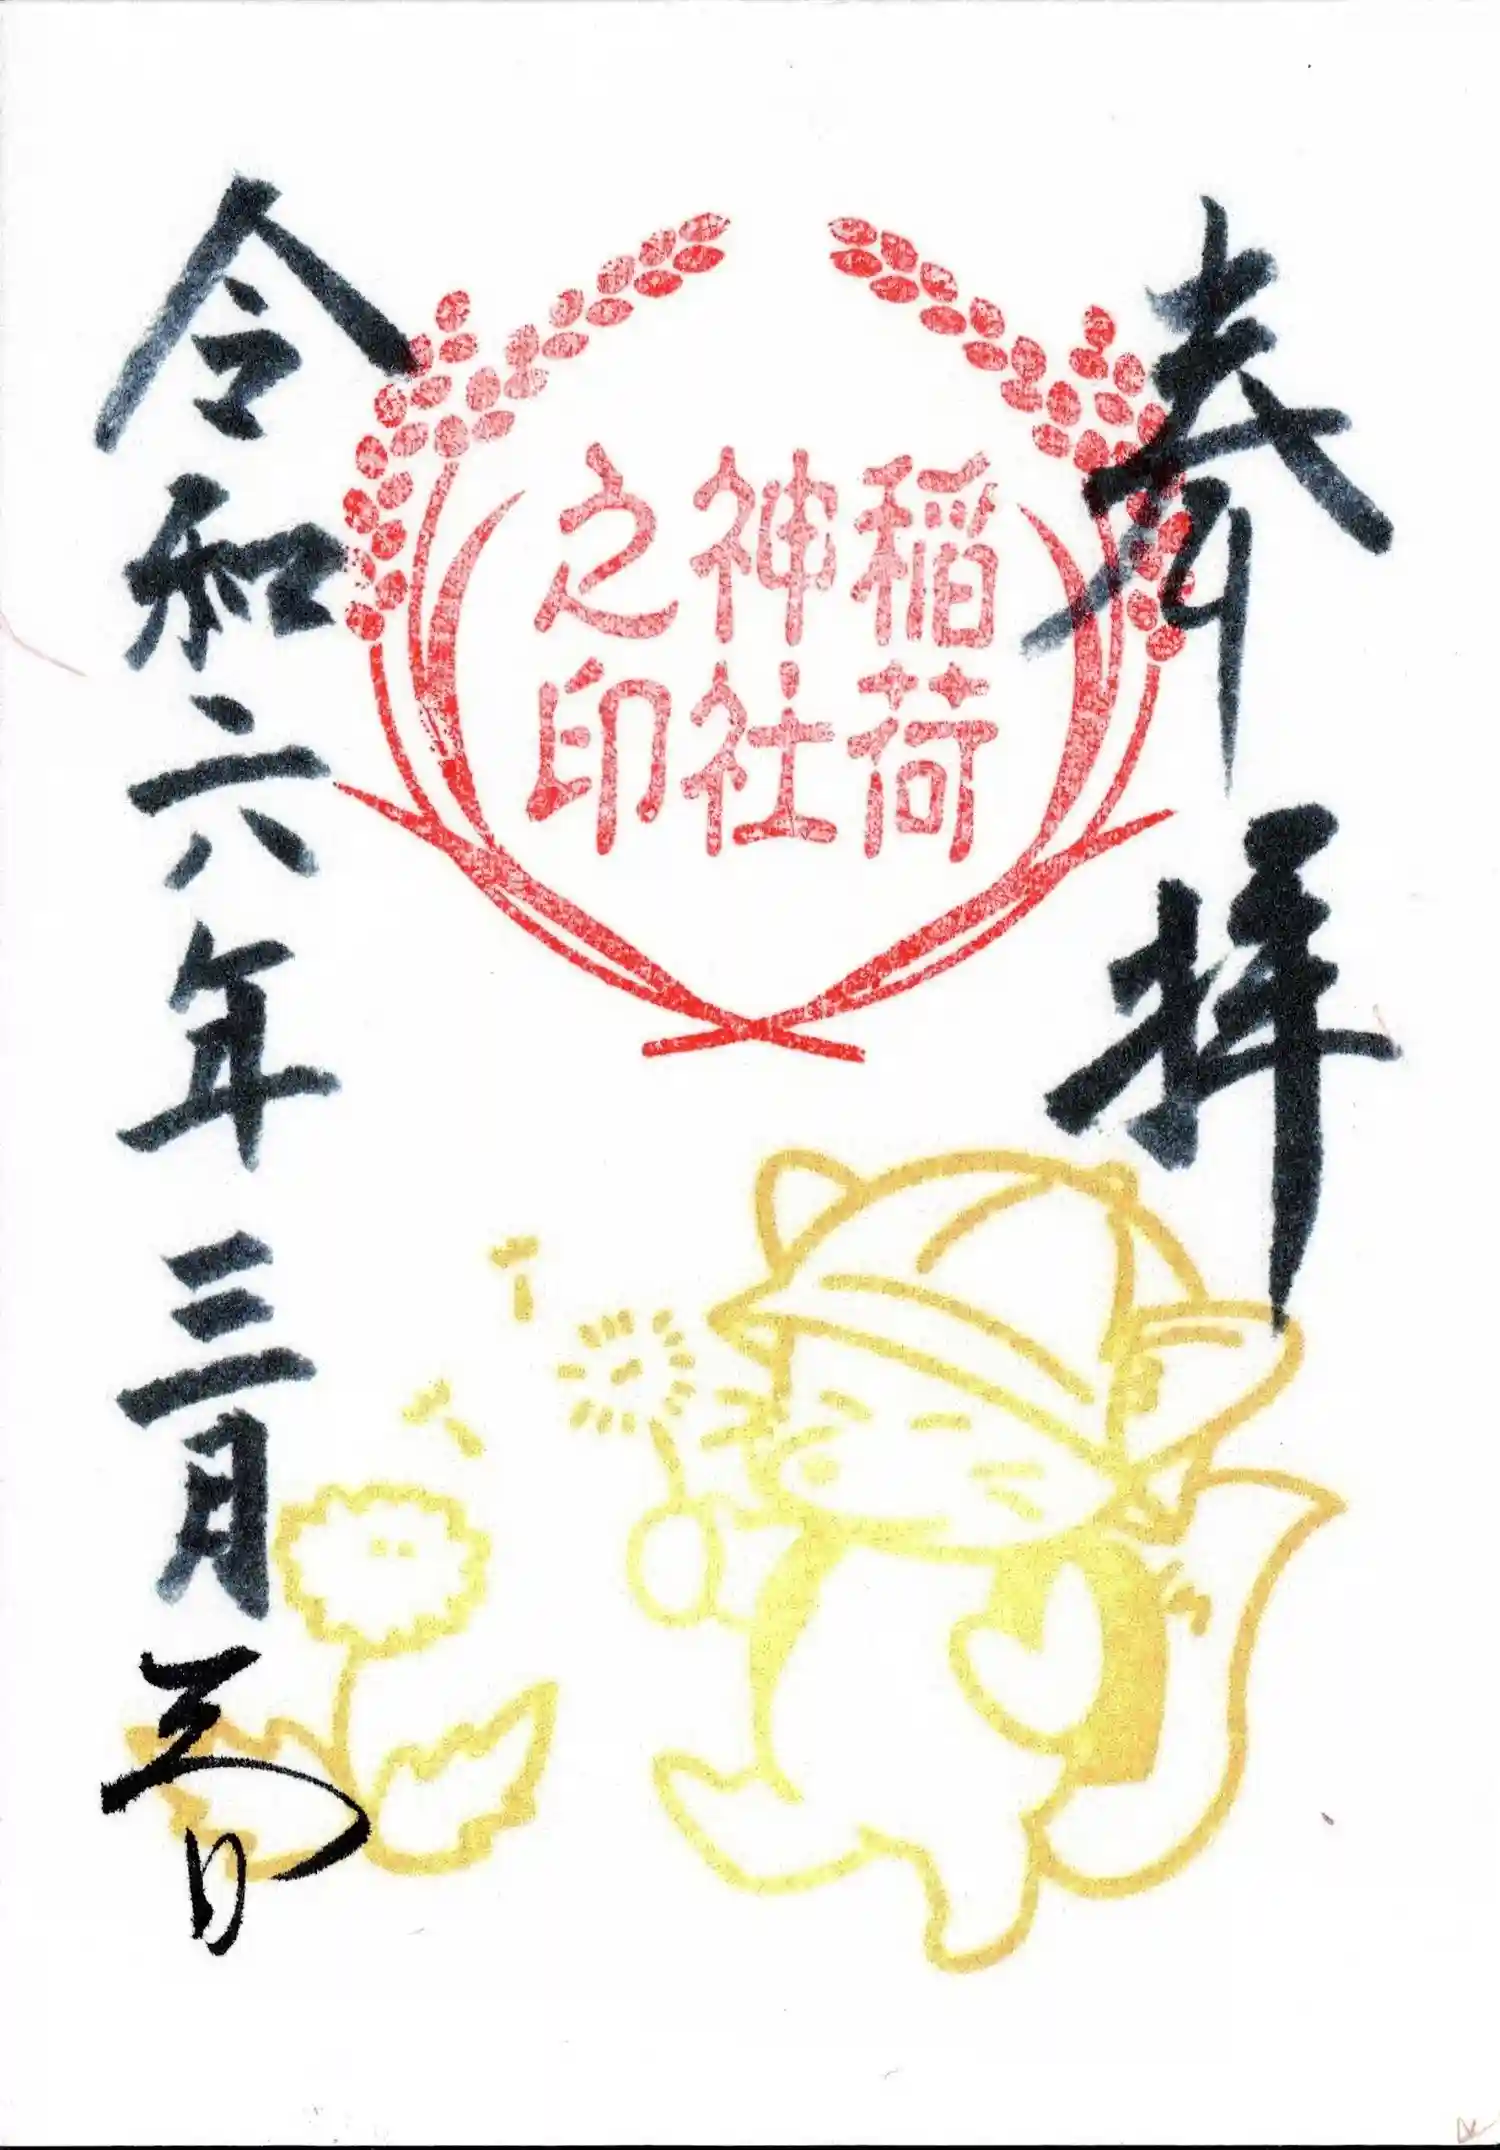 奉拝
稲荷
神社
之印
令和六年三月三日